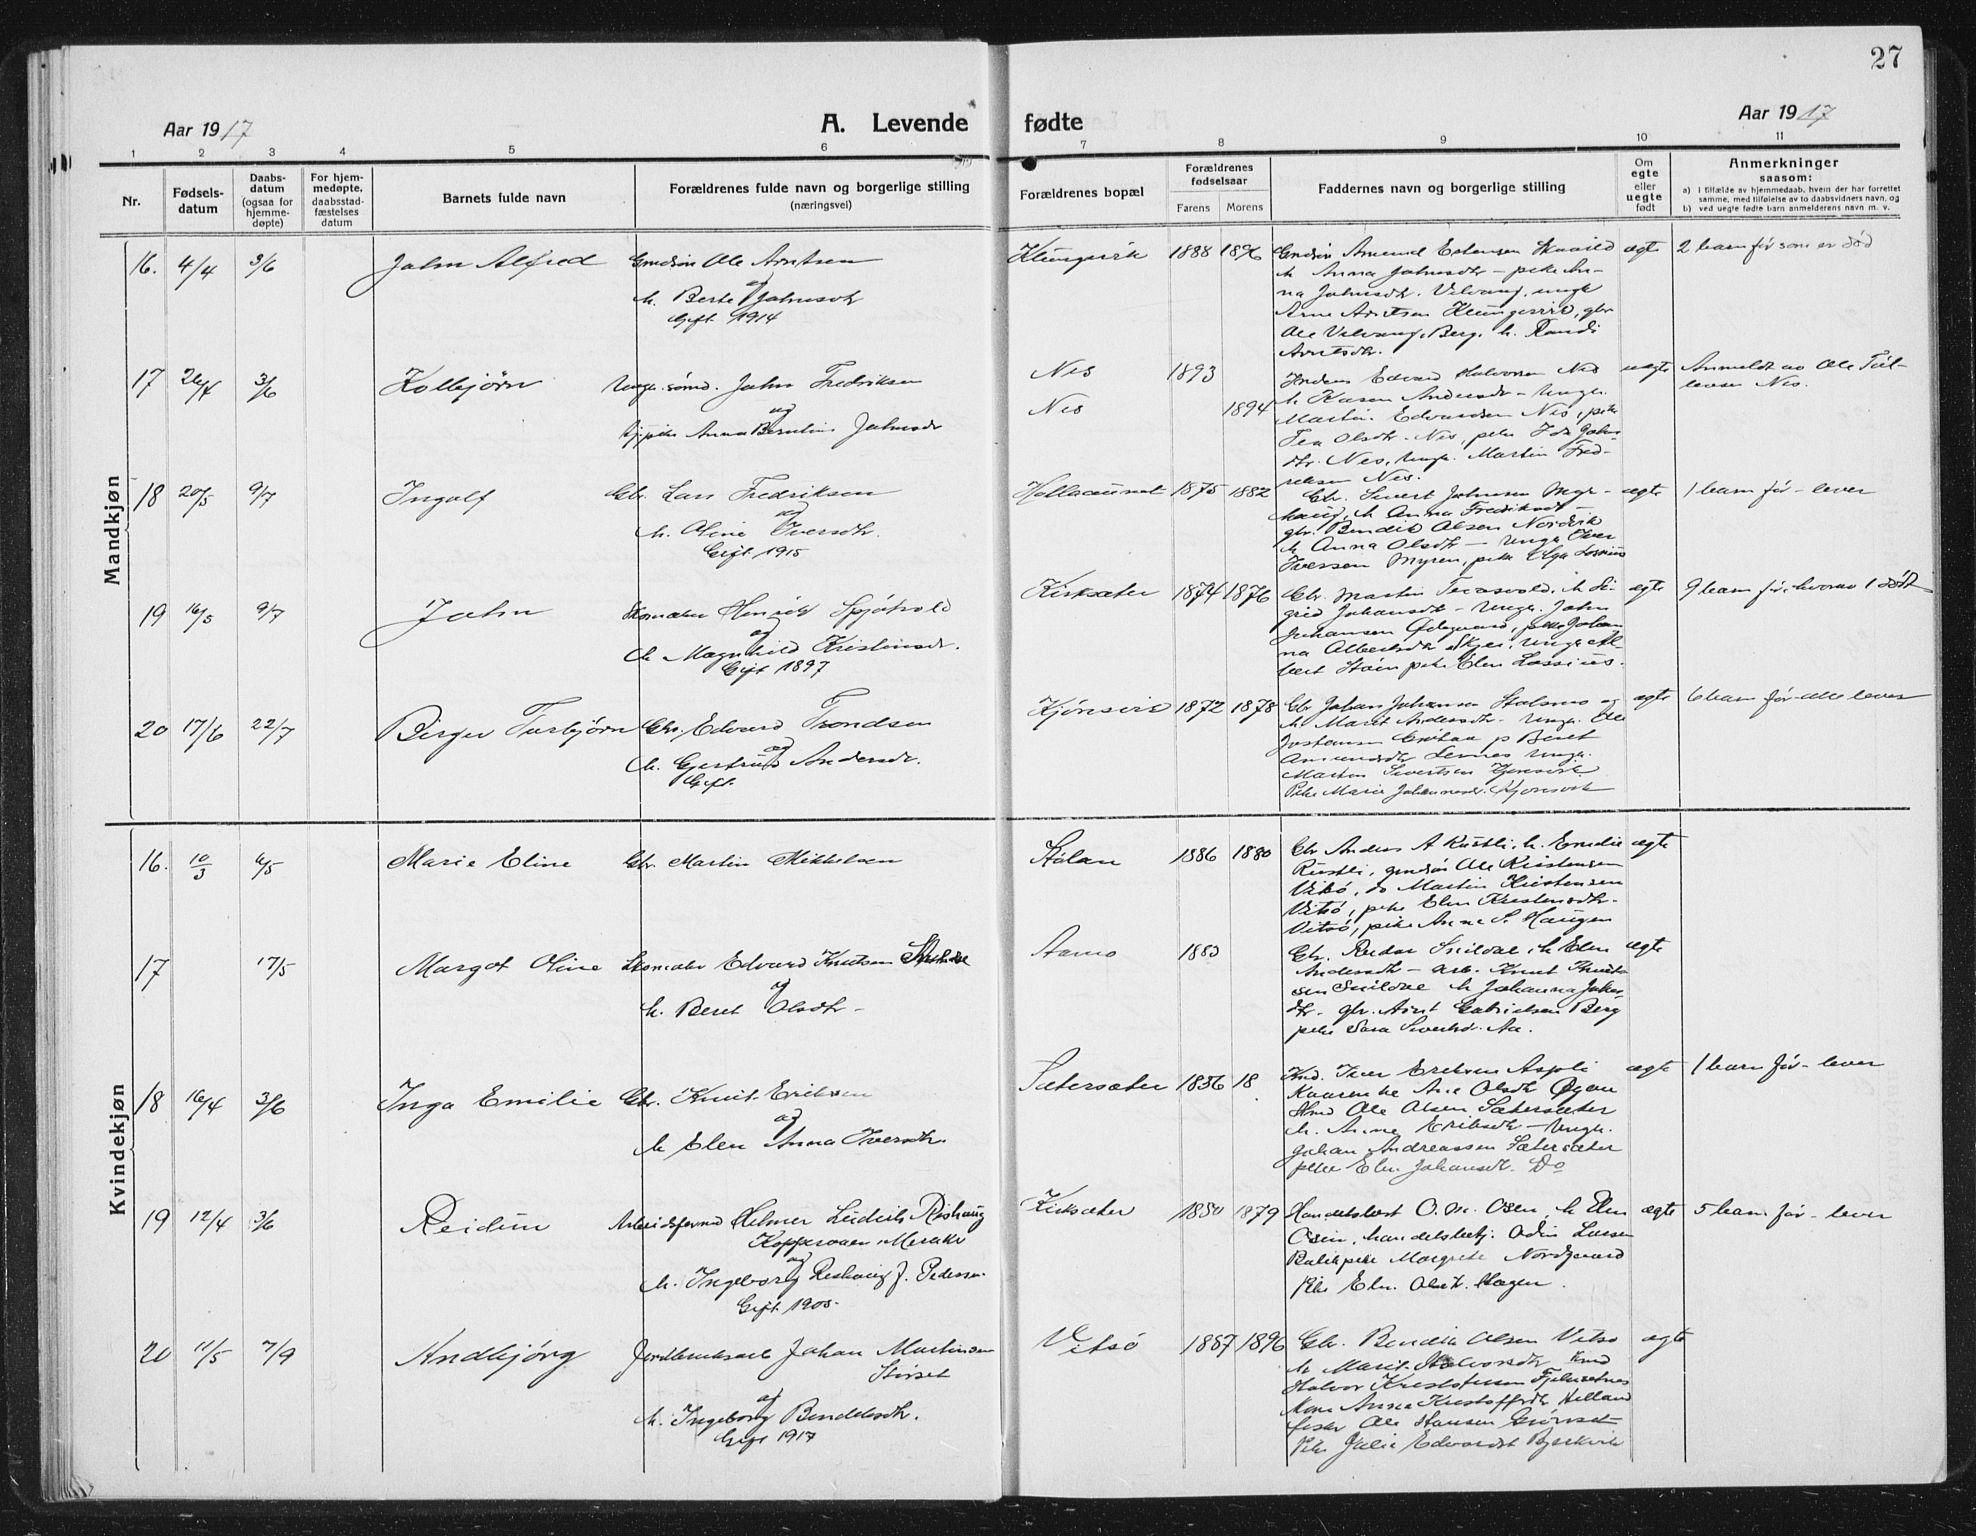 27
Aar 1917
A. Levende fødte
Aar 1917
1 2 3 4 5 6 7 8 9 10 11
Nr.
Fødsels-
datum
Daabs-
datum
(ogsaa for
hjemme-
døpte)
For hjem-
medøpte,
daabsstad-
fæstelses
datum
Barnets fulde navn
Forældrenes fulde navn og borgerlige stilling
(næringsvei)
Forældrenes bopæl
Forældrenes
fødselsaar
Farens Morens
Faddernes navn og borgerlige stilling
Om
egte
eller
uegte
født
Anmerkninger
saasom:
a) i tilfælde av hjemmedaab, hvem der har forrettet
samme, med tilføielse av to daabsvidners navn, og
b) ved uegte fødte barn anmelderens navn m. v.
Mandkjøn
16. 4/4 3/6 John Alfred Grndsin Ole Arntsen
og
h. Berte Johnsdtr
Gift 1914
Klungervik 1888 1896
Amund Estensen
h. Anna Johnsdtr - pike An-
na Johnsdtr. Volvang, ungk
Arne Arntsen Klungervik, gbr
Ole Volvang, Berg, h. Randi
Arntsdtr.
egte 2 barn før som er død
17 26/4 3/6 Kolbjørn Ungk. sømd. John Fredriksen
og
pike Anna Berntine Johnsdr
Nes 1893
Nes 1894
Edvard Halvorsen Nes
h Karen Andersdtr - Ungk.
Martin Edvardsen Nes, pike
Tea Olsdtr. Nes, pike Ida John-
dtr. Nes, Ungk. Martin Fred-
riksen Nes.
uegte Anmeldt av Ole Tøl-
levsen Nes.
18 20/5 9/7 Ingolf Gbr. Lars Fredriksen
og
h. Oline Iversdtr.
Gift 1915
Hollaaunet 1875 1882
Gbr. Sivert Johnsen Myr-
haug, h Anna Fredriksdtr -
gbr. Bendik Olsen Nordvik
h Anna Olsdtr - Ungk Iver
Iversen Myren, pike Olga Lossius
egte 1 barn før - lever
19 16/5 9/7 John Skomaker Henrik Spjøtvold
og
h Magnhild Kristinsdr.
Gift 1897
Kirksæter 1874 1876
Gbr. Martin Teresvold, h Si-
grid Johansdtr - Ungk. John
Johansen Ødegaard, pike Johan
na Albertsdtr Skjei, Ungk Al
bert Støen pike Elen Lossius.
egte 9 barn før, hvorav 1 død
20 17/6 22/7 Birger Torbjørn Gbr. Edvard Trondsen
og
h. Gjertrud Andersdr.
Gift.
Kjønsvik 1872 1878
Gbr Johan Johansen Stolsmo og
h Marit Andersdtr - Ungk. Ole
Jostensen p Beret
Amundsdtr Ungk.
Martin Sivertsen Kjønsvik
Pike Marie Johannesdr. Kjønsvik
egte 6 barn før - alle lever
Kvindekjøn
16. 10/3 6/5 Marie Eline Gbr. Martin Mikkelsen
Stølan 1886 1880
Gbr Anders A Rustli, h. Emelie
Rustli, grndsin Ole Kristensen
Vitsø, do Martin Kristensen
Vitsø, pike Elen Kristensdtr.
Vitsø, pike Anne S. Haugen
egte
17 17/5 Margot Oline Skomaker Edvard Knutsen
og
h. Beret Olsdtr -
Aamo 1883
Gbr. Peder Snildal, h Elen
Andersdtr - arb. Knut Knut-
sen Snildal h Johanna Johs
dtr. gbr. Arnt Gabrielsen Berg
pike Sara Sivertsd. Aa.
egte
18 16/4 3/6 Inga Emilie Gbr. Knut Eriksen
og
h Elen Anna Iversdtr.
Sætersæter 1886 18
Knd. Iver Eriksen Aspli
Kaaren h Ane Olsdtr Øyan
Ole Olsen Sætersæter
h. Anne Eriksdtr - Ungk.
Johan Andreassen Sætersæter
pike Elen Johansdt. Do
egte 1 barn før - lever
19 12/4 3/6 Reidun Arbeidsformd Helmer Ludvik Reshaug
Kopperaaen Meraker
og
h. Ingeborg Reshaug f. Pedersen
Gift 1905.
Kirksæter 1880 1879
Handelsbest O. M. Osen, h Elen
Osen, handelsbetj. Odin Larsen
Balik pike Margrete Nordgaard
Pike Elen Olsdt. Hagen.
egte 5 barn før - lever
20 11/5 7/9 Andbjørg Jernbanearb Johan Martinsen
Størset
og
h. Ingeborg Bendiksdtr.
Gift 1917
Vitsø 1887 1896
Gbr. Bendik Olsen Vitsø
h Marit Halvorsdtr
Halvor Kristoffersen
Kone Anna Kristoffsdtr Helland
fisker Ole Hansen
Pike Julie Edvardsdt Bjerkvik
egte